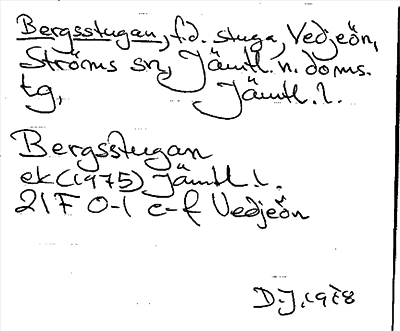 Bergsstugan, f.d. stuga, Vedjeön,
Ströms sn, Jämtl. n. doms.
tg, Jämtl. l.
Bergsstugan
ek (1975) Jämtl l.
21F 0-1 e-f Vedjeön
D.J. 1978